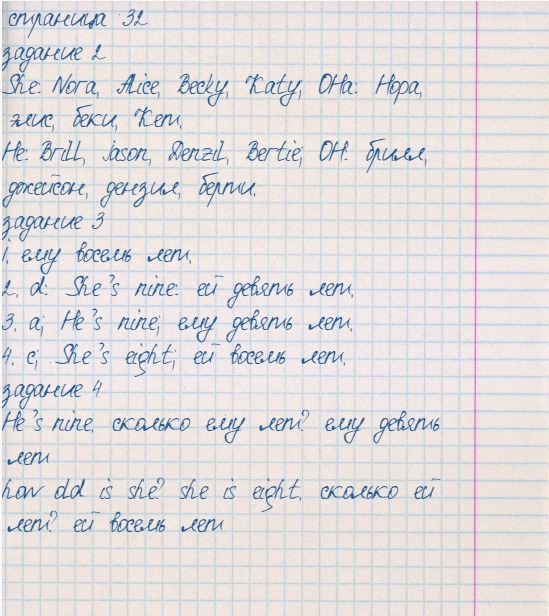 страница 32
задание 2
She: Nora, Alice, Becky, Katy, ОНа: Нора,
элис, беки, Кет,
He: Brill, Jason, Denzil, Bertie; ОН: брилл,
джейсон, дензил, берти,
задание 3
1. ему восемь лет,
2. d: She's nine: ей девять лет,
3. a; He's nine; ему девять лет,
4. c; She's eight; ей восемь лет,
задание 4
He's nine, сколько ему лет? ему девять
лет
how old is she? she is eight, сколько ей
лет? ей восемь лет